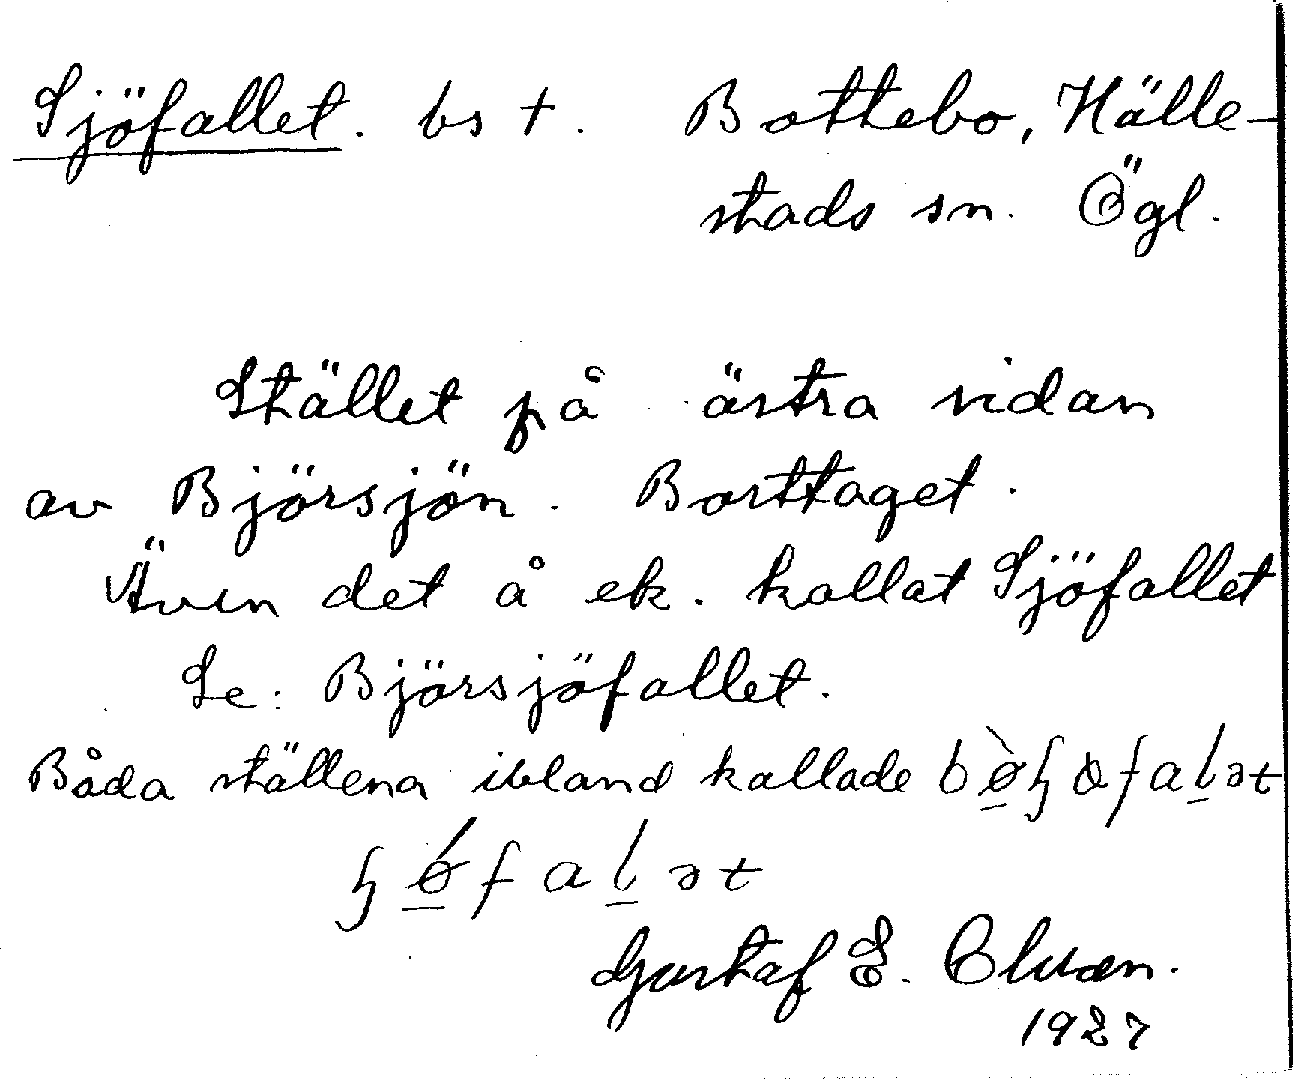 Sjöfallet. bs †. Bottebo, Hälle-
stads sn. Ögl.
Stället på östra sidan
av Björsjön. Borttaget.
Även det å ek. kallat Sjöfallet
Se: Björsjöfallet.
Båda ställena ibland kallade
Gustaf E.
1927